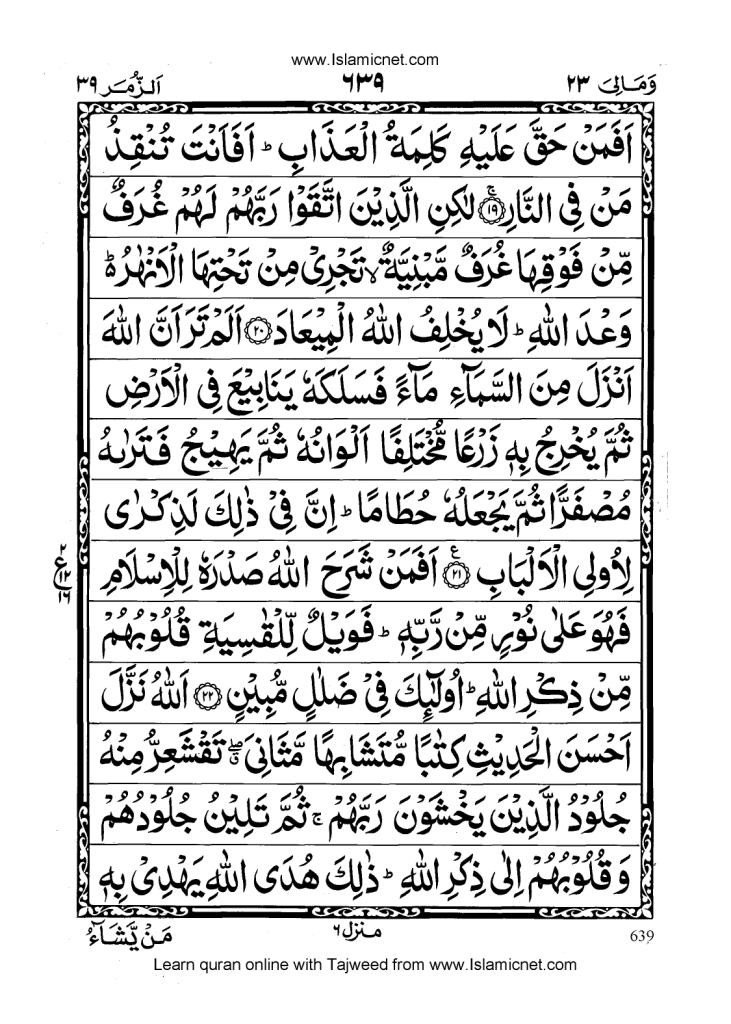 www.Islamicnet.com
وَمَالِیَ ٢٣
٦٣٩
اَلزُّمَر ٣٩
اَفَمَنْ حَقَّ عَلَیْهِ كَلِمَةُ الْعَذَابِ ؕ اَفَاَنْتَ تُنْقِذُ
مَنْ فِی النَّارِ ۚ ﴿١٩﴾ لٰكِنِ الَّذِیْنَ اتَّقَوْا رَبَّهُمْ لَهُمْ غُرَفٌ
مِّنْ فَوْقِهَا غُرَفٌ مَّبْنِیَّةٌ ۙ تَجْرِیْ مِنْ تَحْتِهَا الْاَنْهٰرُ ؕ۬
وَعْدَ اللّٰهِ ؕ لَا یُخْلِفُ اللّٰهُ الْمِیْعَادَ ﴿٢٠﴾ اَلَمْ تَرَ اَنَّ اللّٰهَ
اَنْزَلَ مِنَ السَّمَآءِ مَآءً فَسَلَكَهٗ یَنَابِیْعَ فِی الْاَرْضِ
ثُمَّ یُخْرِجُ بِهٖ زَرْعًا مُّخْتَلِفًا اَلْوَانُهٗ ثُمَّ یَهِیْجُ فَتَرٰىهُ
مُصْفَرًّا ثُمَّ یَجْعَلُهٗ حُطَامًا ؕ اِنَّ فِیْ ذٰلِكَ لَذِكْرٰی
لِاُولِی الْاَلْبَابِ ﴿٢١﴾ ع اَفَمَنْ شَرَحَ اللّٰهُ صَدْرَهٗ لِلْاِسْلَامِ
٢
ع
١٢
١٦
فَهُوَ عَلٰی نُوْرٍ مِّنْ رَّبِّهٖ ؕ فَوَیْلٌ لِّلْقٰسِیَةِ قُلُوْبُهُمْ
مِّنْ ذِكْرِ اللّٰهِ ؕ اُولٰٓىِٕكَ فِیْ ضَلٰلٍ مُّبِیْنٍ ﴿٢٢﴾ اَللّٰهُ نَزَّلَ
اَحْسَنَ الْحَدِیْثِ كِتٰبًا مُّتَشَابِهًا مَّثَانِیَ ۖۗ تَقْشَعِرُّ مِنْهُ
جُلُوْدُ الَّذِیْنَ یَخْشَوْنَ رَبَّهُمْ ۚ ثُمَّ تَلِیْنُ جُلُوْدُهُمْ
وَقُلُوْبُهُمْ اِلٰی ذِكْرِ اللّٰهِ ؕ ذٰلِكَ هُدَی اللّٰهِ یَهْدِیْ بِهٖ
639
منزل ٦
مَنْ یَّشَآءُ
Learn quran online with Tajweed from www.Islamicnet.com